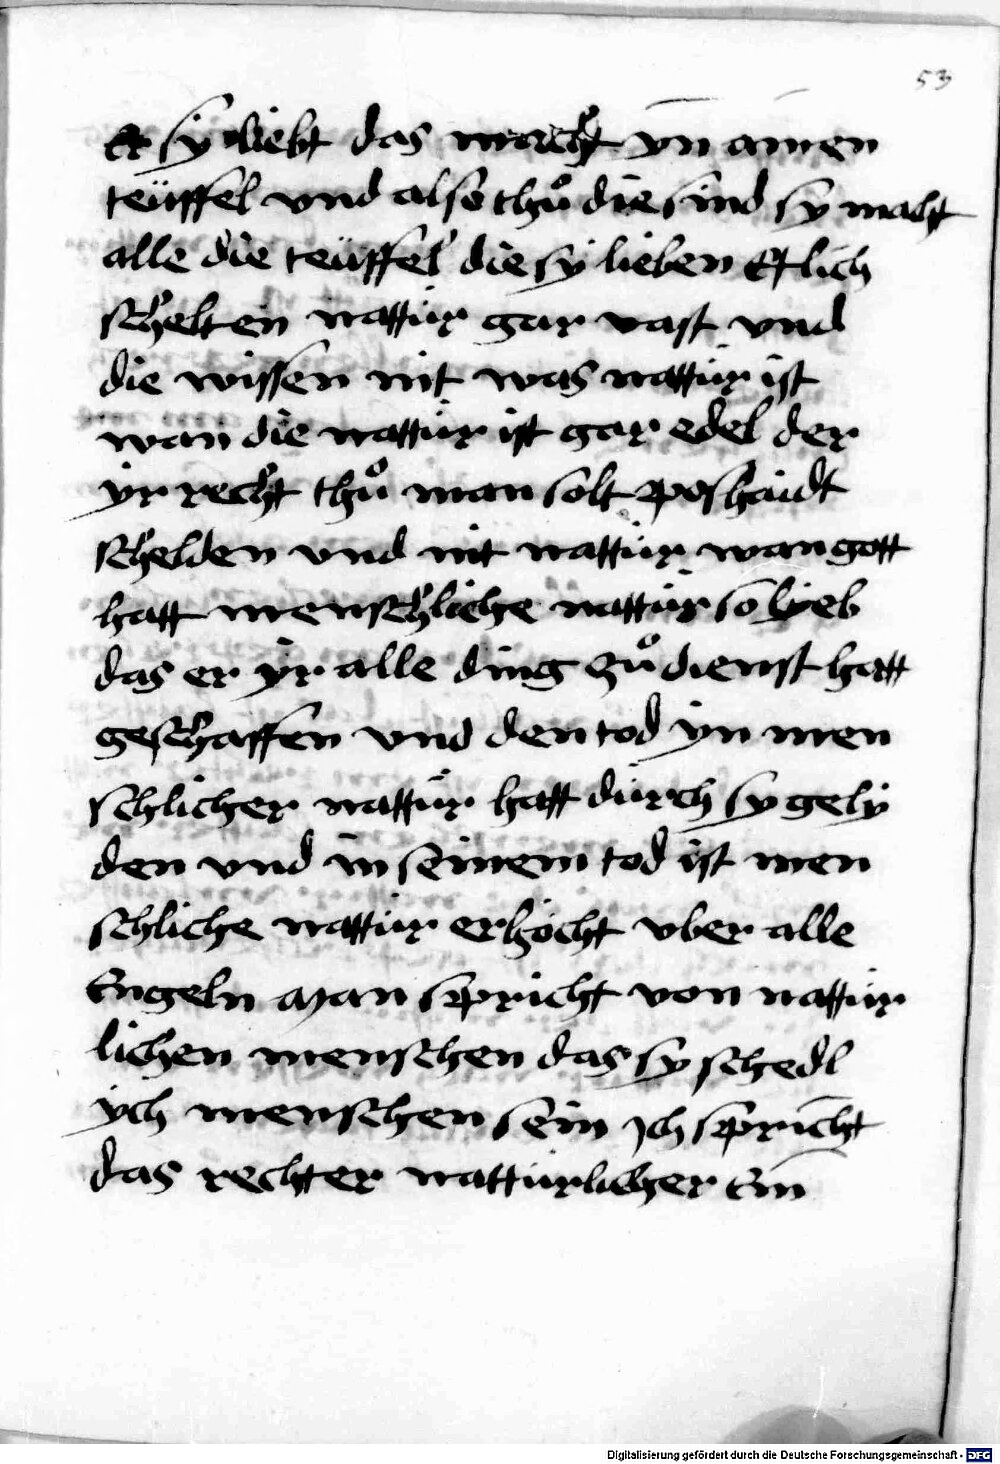 53
er sy liebt das macht yn ainen
teüffel vnd also thuͦ die sind sy macht
alle die teüffel die sy lieben Etlich
schelten nattur gar vast vnd
die wissen nit was nattur ist
wan die nattur ist gar edel der
yr recht thuͦ man solt poshaidt
schelden vnd nit nattur wan gott
hatt menschliche nattur so lyeb
das er yr alle ding zuͦ dienst hatt
geschaffen vnd den tod yn men
schlicher nattur hatt durch sy gely
den vnd in seinem tod ist men
schliche nattur erhöcht vber alle
Engeln Man spricht von nattur
lichen menschen das sy schedl
ych menschen sein Ich spricht
das rechter natturlicher Ein
Digitalisierung gefördert durch die Deutsche Forschungsgemeinschaft - DFG